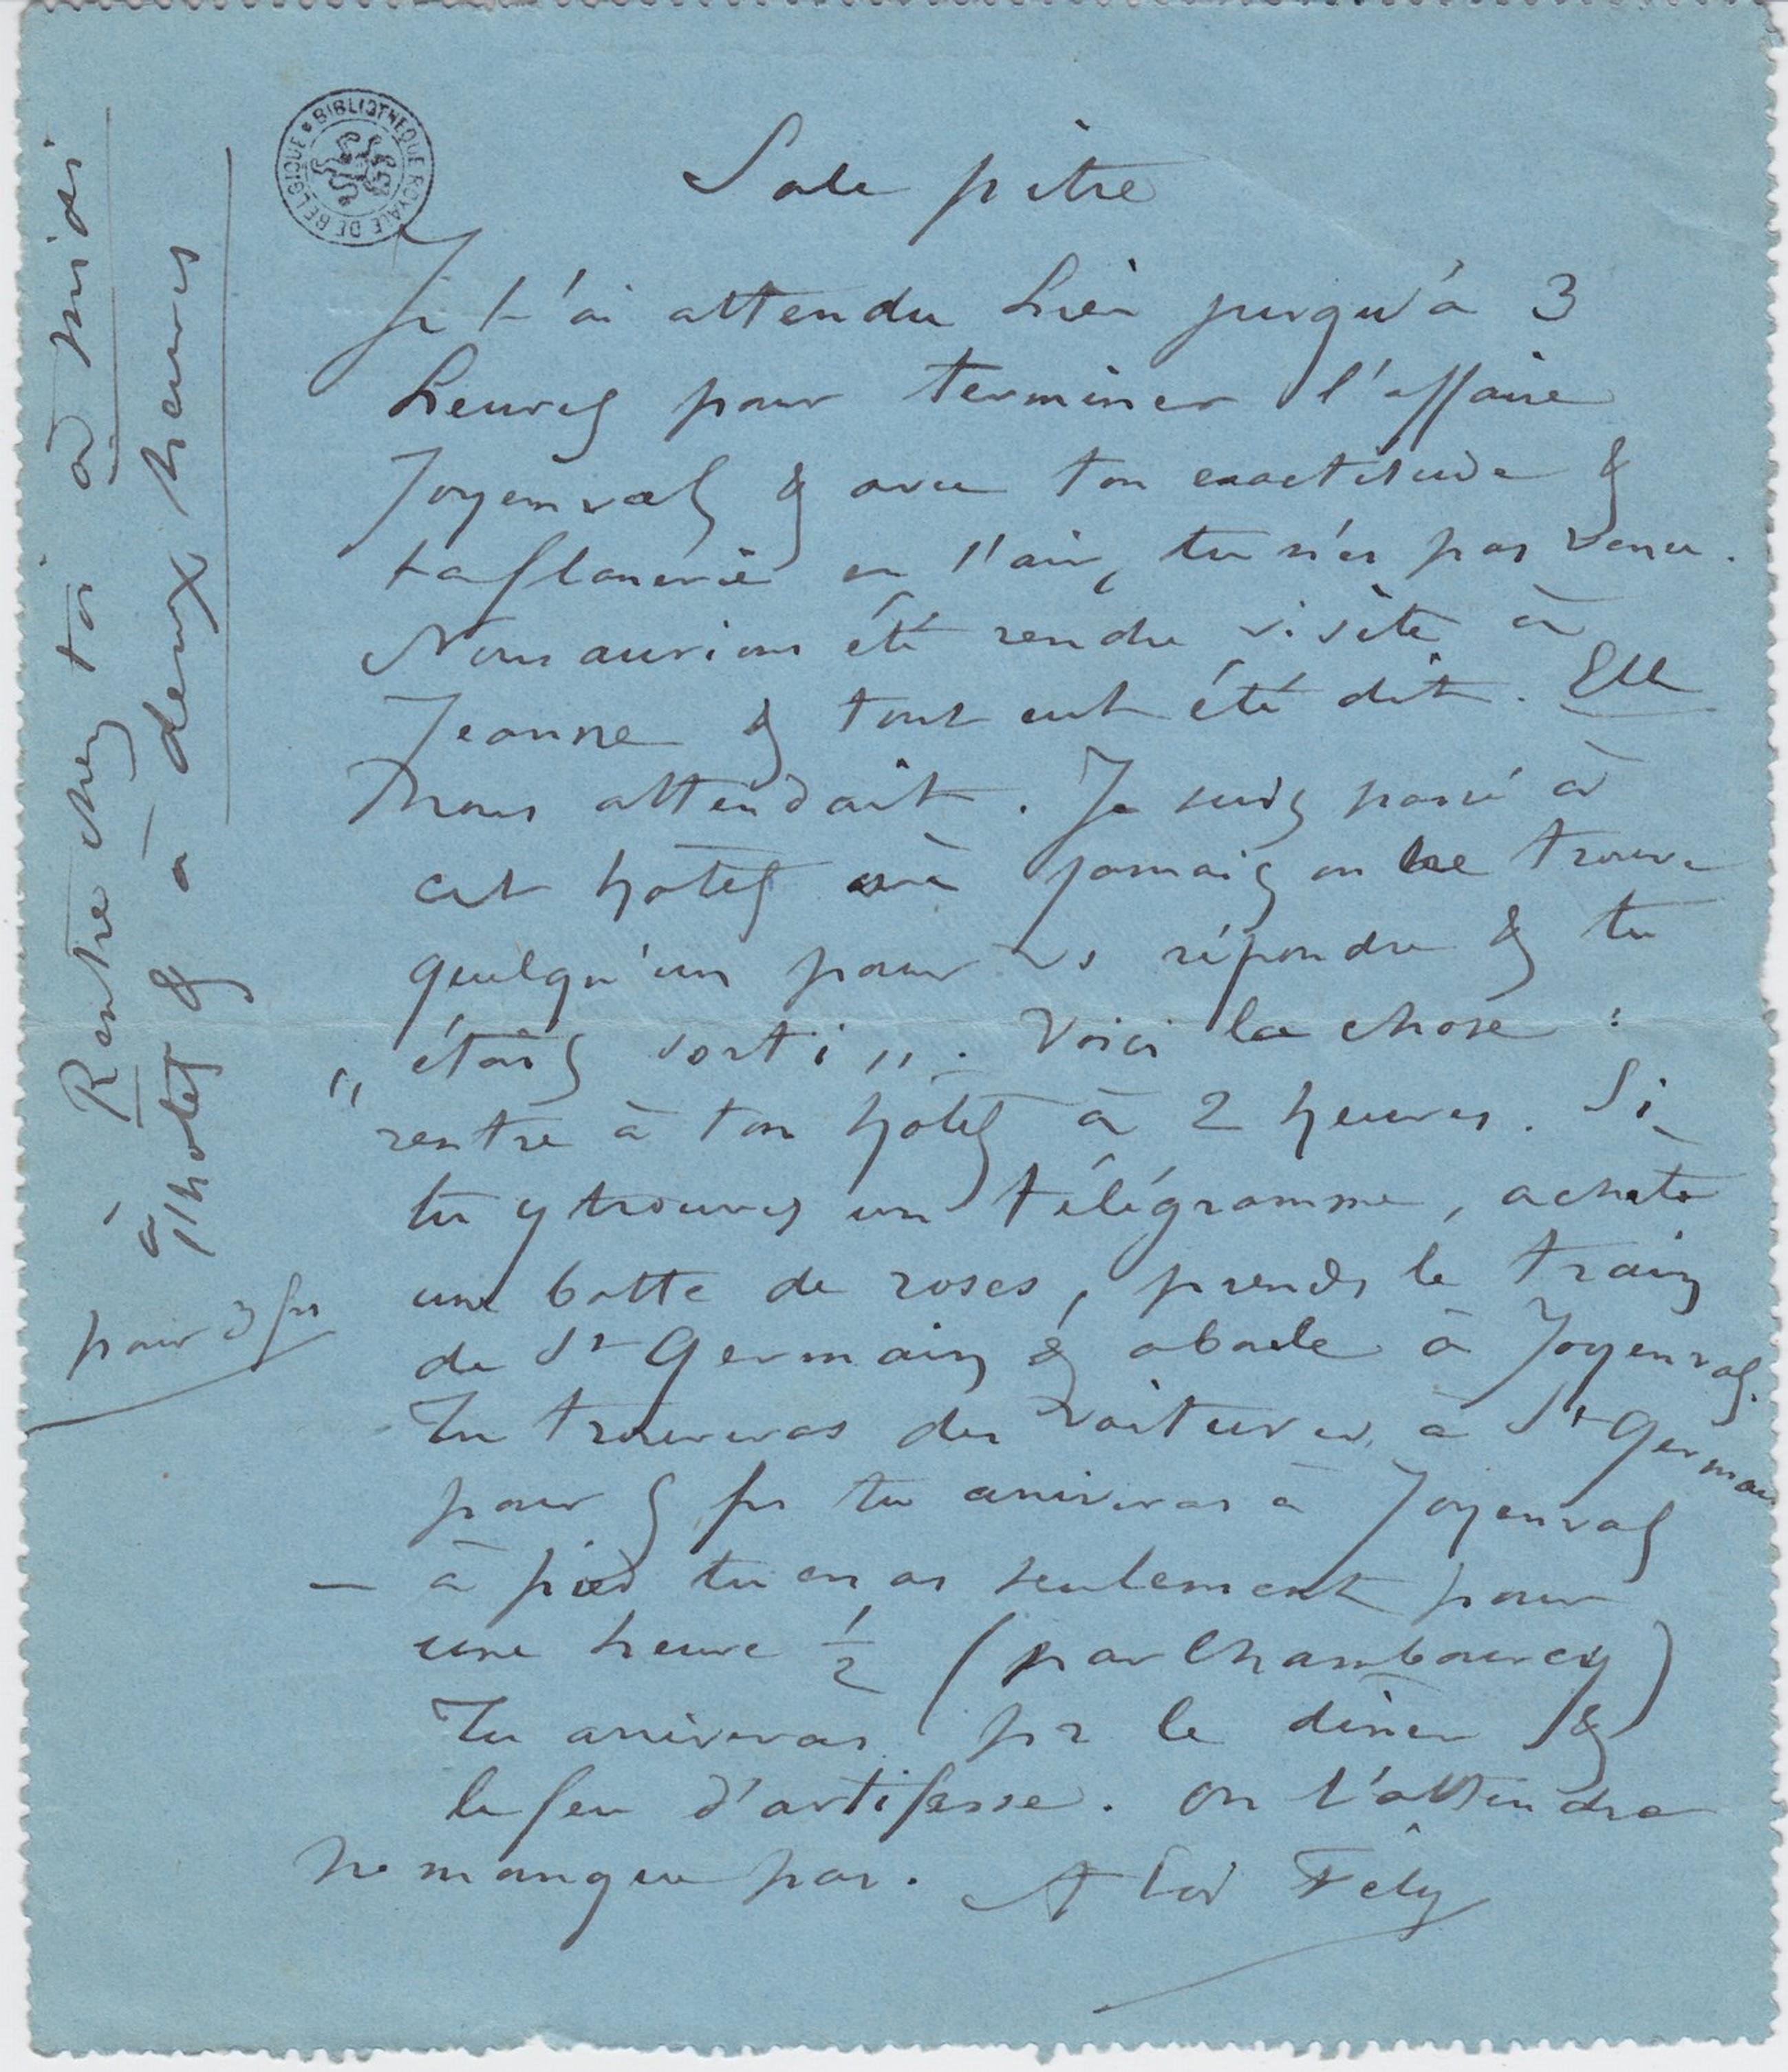 BIBLIOTHEQUE ROYALE DE BELGIQUE
Sale pitre
Je t'ai attendu hier jusqu'à 3
heures pour terminer l'affaire
Joyenval & avec ton exactitude &
ta flanerie en l'air, tu n'es pas venu.
Nous aurions été rendre visite à
Jeanne & tout eut été dit. Elle
nous attendait. Je suis passé à
cet hôtel où jamais on ne trouve
quelqu'un pour vs répondre & tu
"étais sorti". Voici la chose :
rentre à ton hôtel à 2 heures. Si
tu y trouves un télégramme, achete
une botte de roses, prends le train
de St Germain & aboule à Joyenval.
Tu trouveras des voitures à St Germain
pour 5 frs tu arriveras à Joyenval
— à pied tu en as seulement pour
une heure ½ (par Chambourcy)
Tu arriveras pr le diner &
le feu d'artifesse. On t'attendra
ne manque pas. A toi Fély
Rentre chez toi à midi
à l'hotel & à deux heures
pour 3 frs